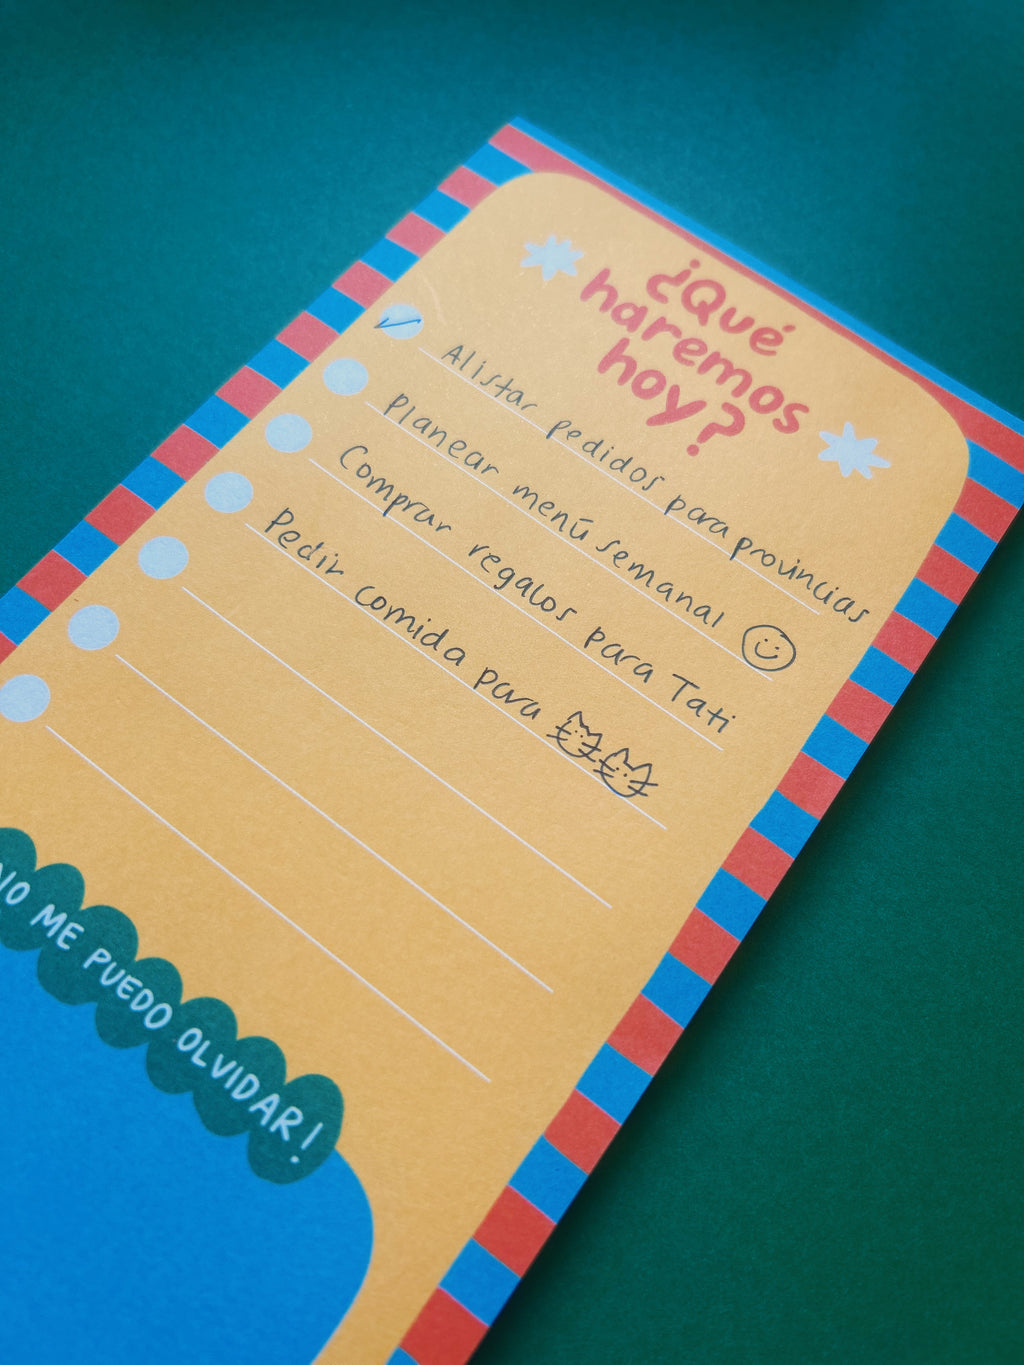 ¿Qué
haremos
hoy?
Alistar pedidos para provincias
Planear menú semanal
Comprar regalos para Tati
Pedir comida para
NO ME PUEDO OLVIDAR!